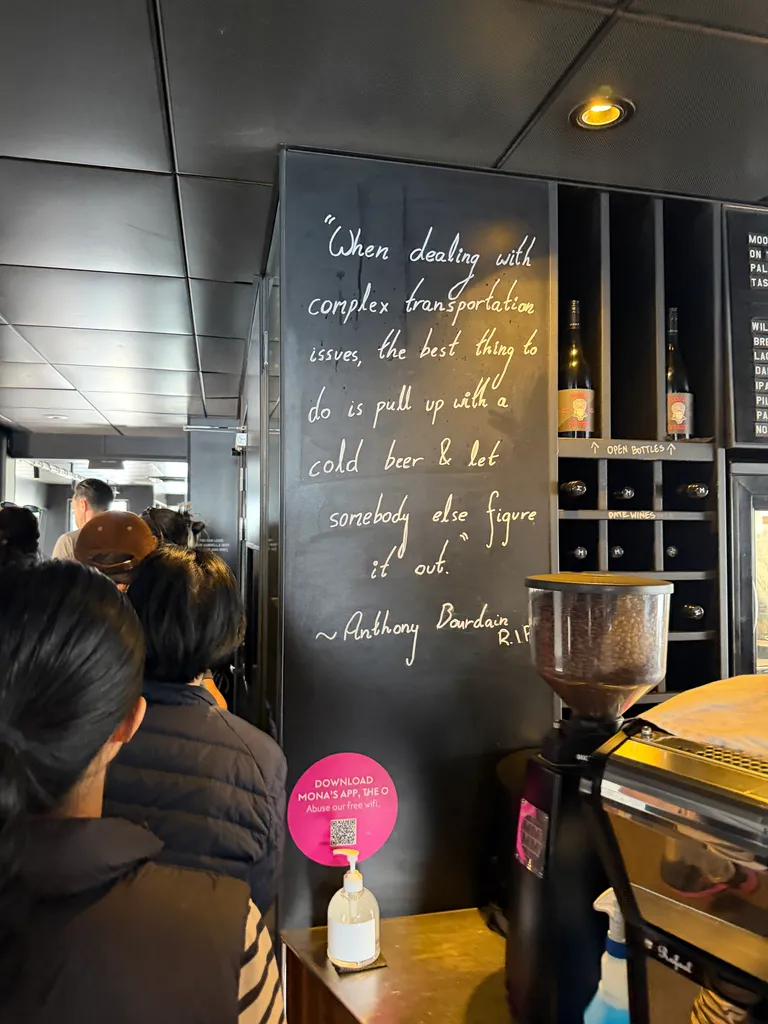 "When dealing with
complex transportation
issues, the best thing to
do is pull up with a
cold beer & let
somebody else figure
it out."
~Anthony Bourdain
R.I.P
DOWNLOAD
MONA'S APP, THE O
Abuse our free wifi.
↑ OPEN BOTTLES ↑
MOO
ON T
PAL
TAS
WIL
BRE
LAG
DAR
IPA
PIL
PA
NO